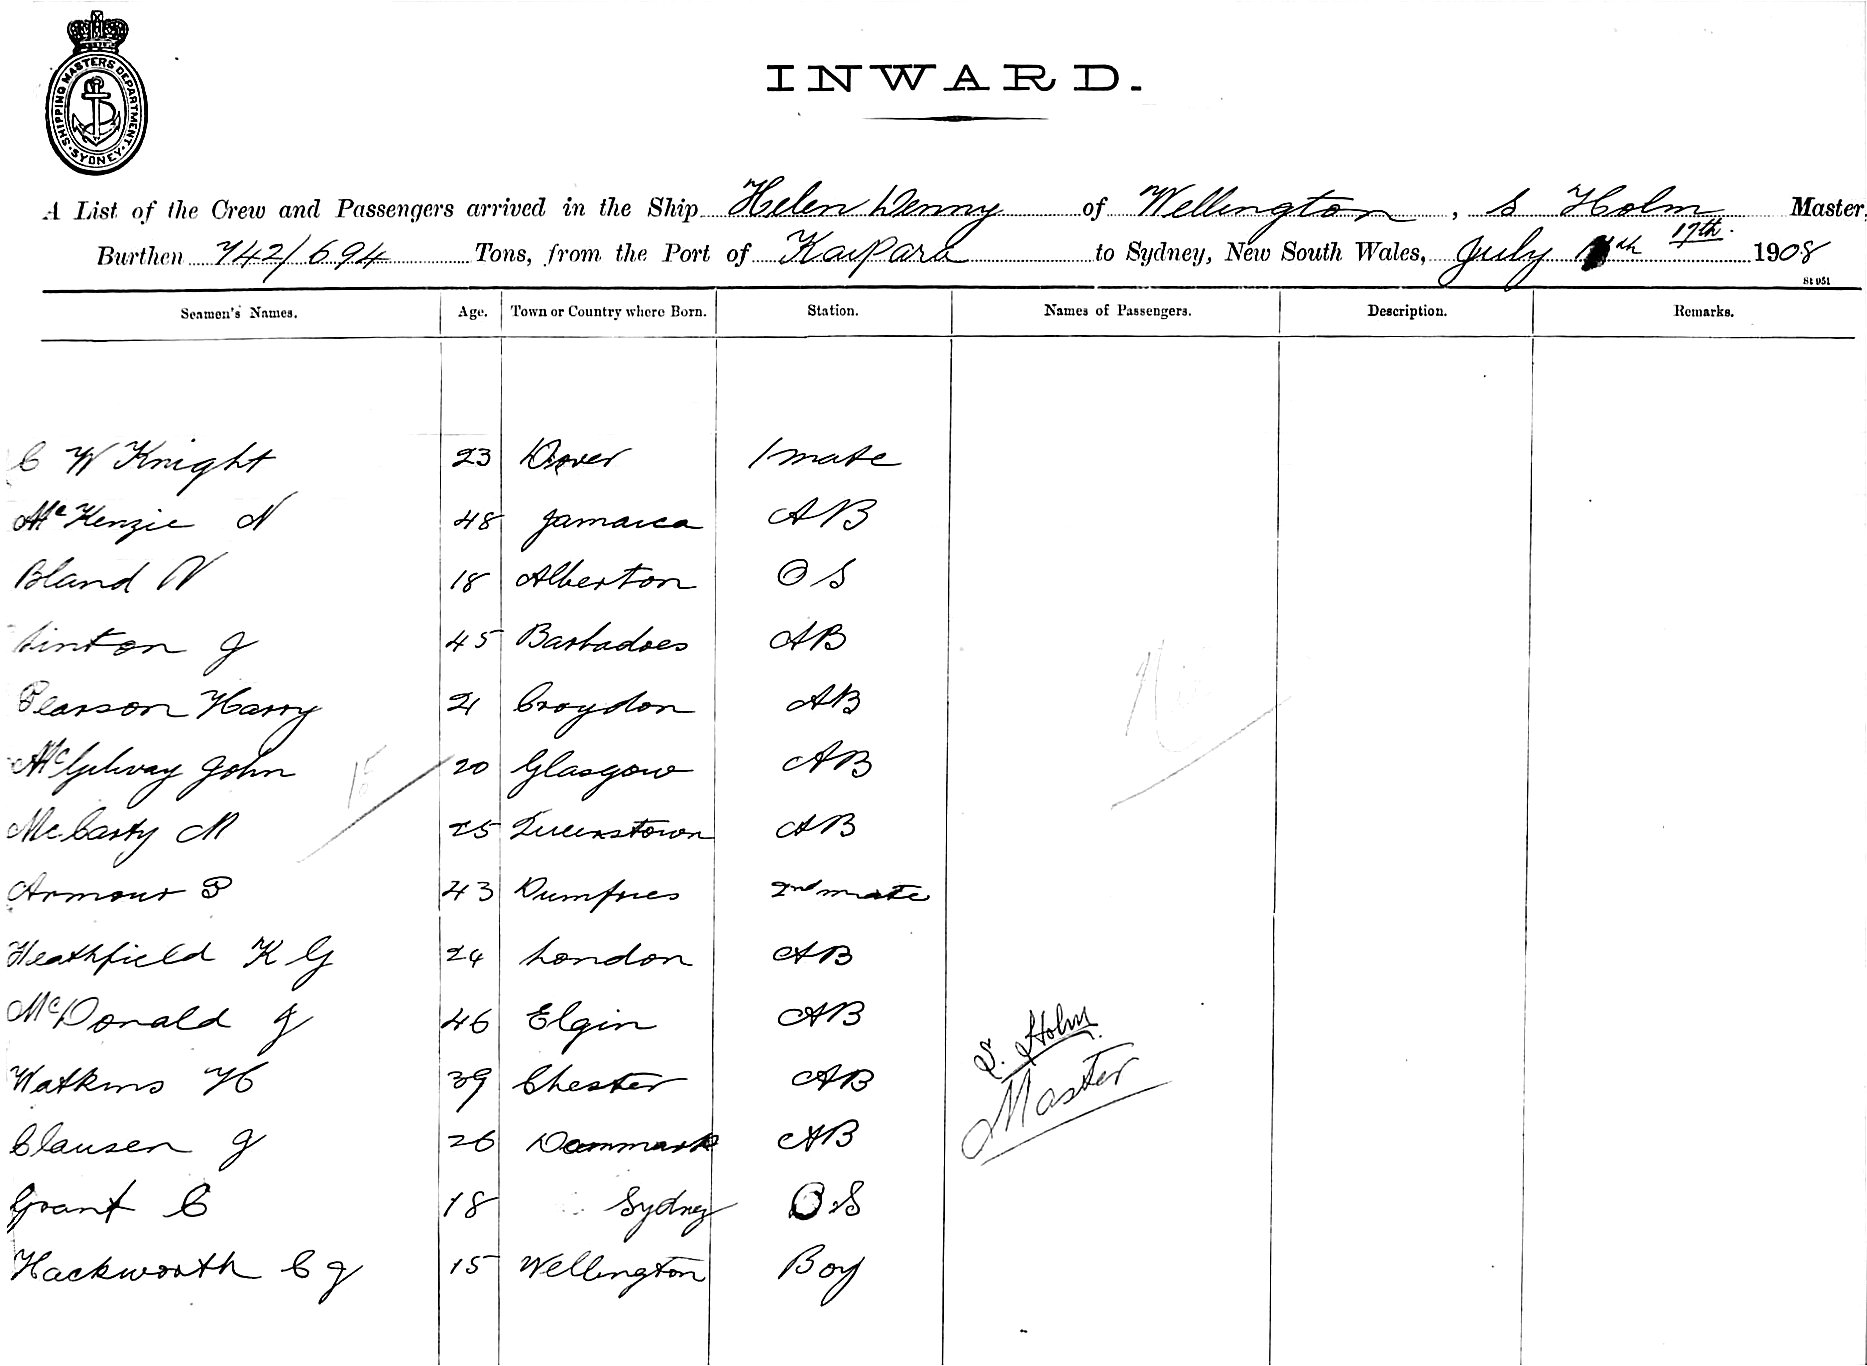 SHIPPING MASTERS DEPARTMENT
SYDNEY
INWARD.
A List of the Crew and Passengers arrived in the Ship Helen Denny of Wellington, S Holm Master,
Burthen 742/694 Tons, from the Port of Kaipara to Sydney, New South Wales, July 17th 1908
St 051
Seamen's Names. Age. Town or Country where Born. Station. Names of Passengers. Description. Remarks.
C W Knight 23 Dover 1 mate
McKenzie N 48 Jamaica AB
Bland W 18 Alberton OS
Sinton J 45 Barbadoes AB
Pearson Harry 21 Croydon AB
Nil
McGilvay John 20 Glasgow AB
15
McCarty M 25 Queenstown AB
Armour P 43 Dumfries 2nd mate
Heathfield K G 24 London AB
McDonald J 46 Elgin AB
S. Holm
Watkins H 39 Chester AB
Master
Clausen J 26 Danmark AB
Grant C 18 Sydney OS
Hackworth C J 15 Wellington Boy